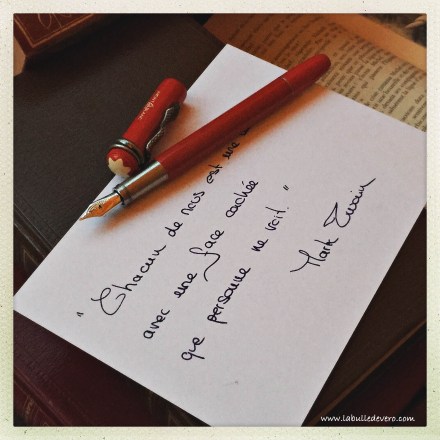 "Chacun de nous est une
avec une face cachée
que personne ne voit."
Mark Twain
www.labulledevero.com